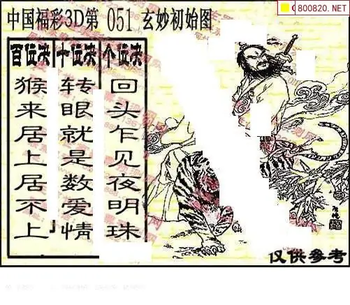 C800820.NET
中国福彩3D第 051 玄妙初始图
百位决
十位决
个位决
猴来居上居不上
转眼就是数爱情
回头乍见夜明珠
仅供参考